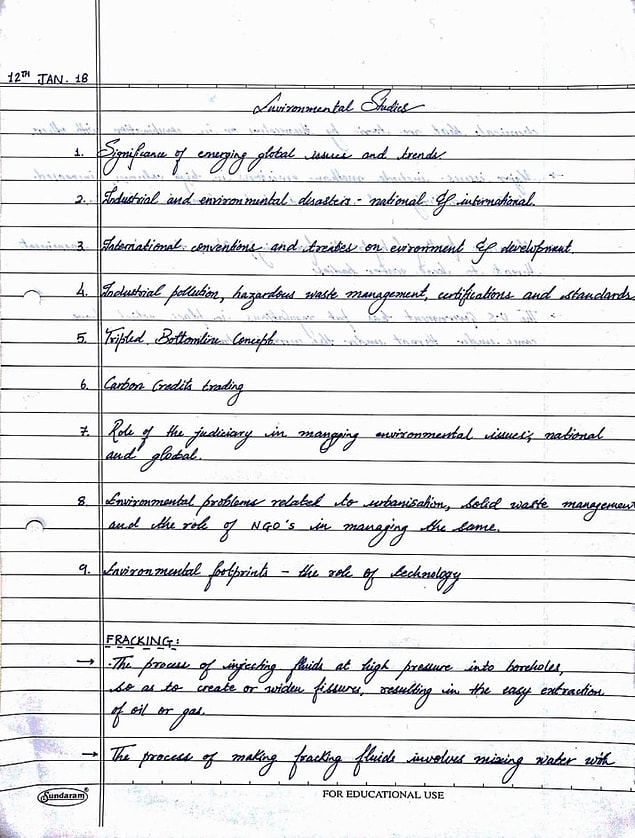 12TH JAN. 18
Environmental Studies
1. Significance of emerging global issues and trends
2. Industrial and environmental disasters - national & international.
3. International conventions and treaties on evironment & development.
4. Industrial pollution, hazardous waste management, certifications and standards
5. Tripled Bottomline Concept
6. Carbon Credits trading
7. Role of the judiciary in managing environmental issues; national
and global.
8. Environmental problems related to urbanisation, solid waste management
and the role of NGO's in managing the same.
9. Environmental footprints - the role of technology
FRACKING:
→ The process of injecting fluids at high pressure into boreholes,
so as to create or widen fissures, resulting in the easy extraction
of oil or gas.
→ The process of making fracking fluids involves mixing water with
Sundaram®
FOR EDUCATIONAL USE